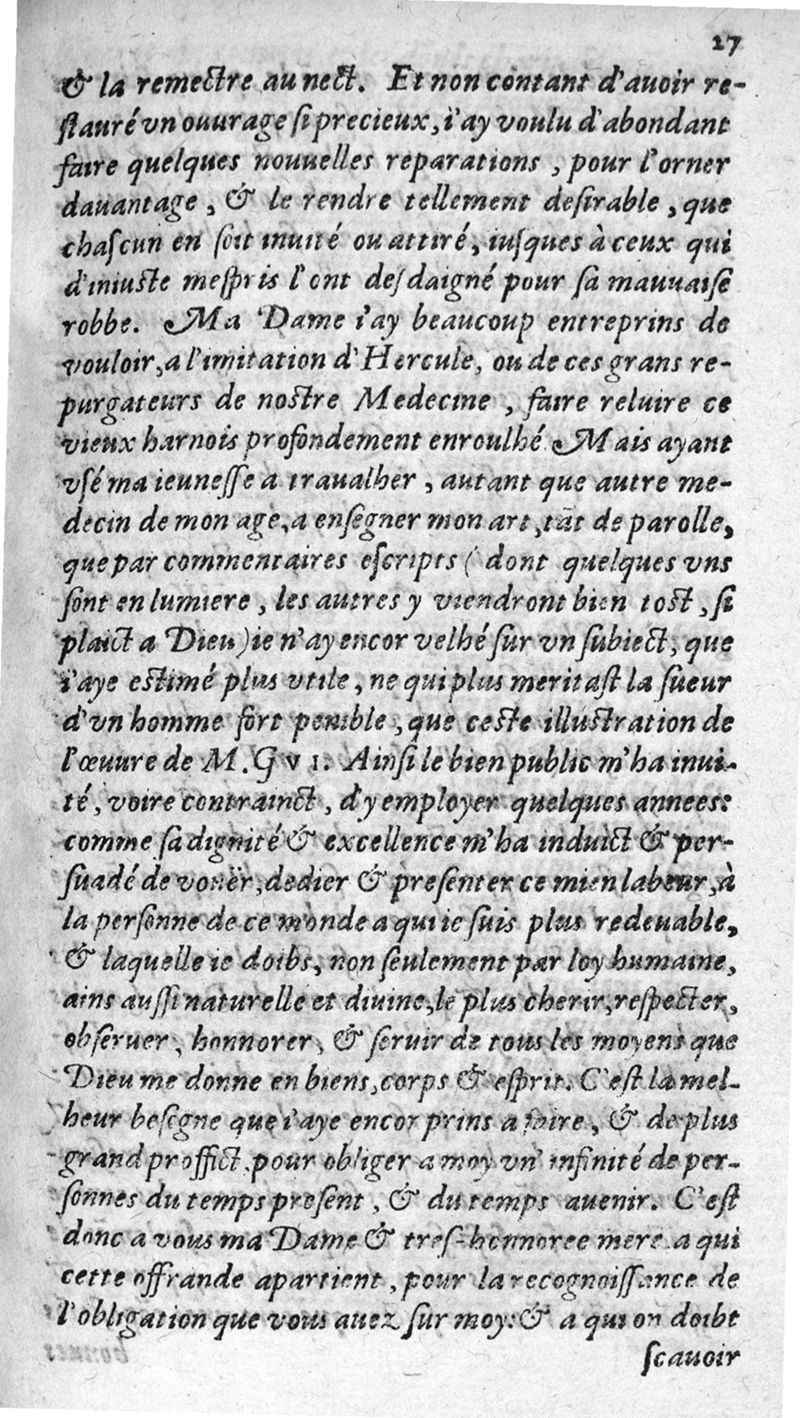 27
& la remectre au nect. Et non contant d'auoir re-
ſtauré vn ouurage ſi precieux, i'ay voulu d'abondant
faire quelques nouuelles reparations, pour l'orner
dauantage, & le rendre tellement deſirable, que
chaſcun en ſoit inuité ou attiré, iuſques à ceux qui
d'iniuſte meſpris l'ont deſdaigné pour ſa mauuaiſe
robbe. Ma Dame i'ay beaucoup entreprins de
vouloir, a l'imitation d'Hercule, ou de ces grans re-
purgateurs de noſtre Medecine, faire reluire ce
vieux harnois profondement enroulhé. Mais ayant
vſé ma ieuneſſe a traualher, autant que autre me-
decin de mon age, a enſegner mon art, tãt de parolle,
que par commentaires eſcripts (dont quelques vns
ſont en lumiere, les autres y viendront bien toſt, ſi
plaict a Dieu) ie n'ay encor velhé ſur vn ſubiect, que
i'aye eſtimé plus vtile, ne qui plus meritaſt la ſueur
d'vn homme fort penible, que ceſte illuſtration de
l'œuure de M. GVI. Ainſi le bien public m'ha inui-
té, voire contrainct, d'y employer quelques annees:
comme ſa dignité & excellence m'ha induict & per-
ſuadé de vouër, dedier & preſenter ce mien labeur, à
la perſonne de ce monde a qui ie ſuis plus redeuable,
& laquelle ie doibs, non ſeulement par loy humaine,
ains auſſi naturelle et diuine, le plus cherir, reſpecter,
obſeruer, honnorer, & ſeruir de tous les moyens que
Dieu me donne en biens, corps & eſprit. C'eſt la mel-
heur beſogne que i'aye encor prins a faire, & de plus
grand proffict, pour obliger a moy vn' infinité de per-
ſonnes du temps preſent, & du temps auenir. C'eſt
donc a vous ma Dame & treſ-honnoree mere a qui
cette offrande apartient, pour la recognoiſſance de
l'obligation que vous auez ſur moy: & a qui on doibt
ſcauoir